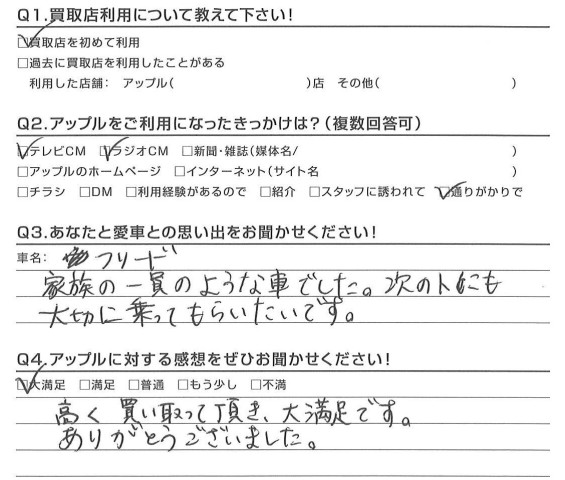 Q1.買取店利用について教えて下さい！
☑買取店を初めて利用
□過去に買取店を利用したことがある
利用した店舗： アップル（ ）店 その他（ ）
Q2.アップルをご利用になったきっかけは？（複数回答可）
☑テレビCM ☑ラジオCM □新聞・雑誌（媒体名/ ）
□アップルのホームページ □インターネット（サイト名 ）
□チラシ □DM □利用経験があるので □紹介 □スタッフに誘われて ☑通りがかりで
Q3.あなたと愛車との思い出をお聞かせください！
車名： フリード
家族の一員のような車でした。次の人にも
大切に乗ってもらいたいです。
Q4.アップルに対する感想をぜひお聞かせください！
☑大満足 □満足 □普通 □もう少し □不満
高く買い取って頂き、大満足です。
ありがとうございました。